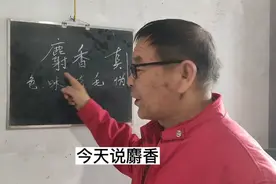 麝香真
色味毛伪
今天说麝香